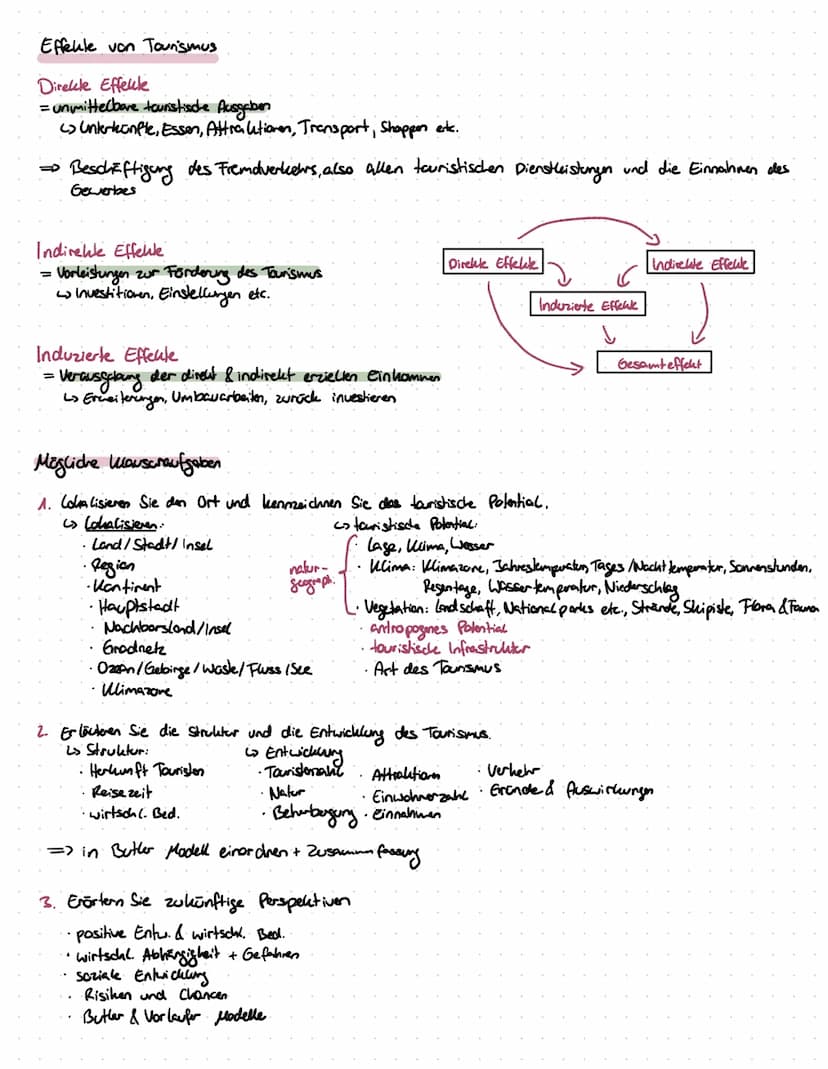 Effekte von Tourismus
Direkte Effekte
= unmittelbare touristische Ausgaben
↳ Unterkünfte, Essen, Attraktionen, Transport, Shoppen etc.
=> Beschäftigung des Fremdverkehrs, also allen touristischen Dienstleistungen und die Einnahmen des
Gewerbes
Indirekte Effekte
= Vorleistungen zur Förderung des Tourismus
↳ Investitionen, Einstellungen etc.
Direkte Effekte
Indirekte Effekte
Induzierte Effekte
Gesamteffekt
Induzierte Effekte
= Verausgabung der direkt & indirekt erzielten Einkommen
↳ Erweiterungen, Umbauarbeiten, zurück investieren
Mögliche Klausuraufgaben
1. Lokalisieren Sie den Ort und kennzeichnen Sie das touristische Potential.
↳ Lokalisieren:
· Land/Stadt/Insel
· Region
· Kontinent
· Hauptstadt
· Nachbarsland/Insel
· Gradnetz
· Ozean/Gebirge/Wüste/Fluss/See
· Klimazone
↳ touristische Potential:
natur-
geograph.
· Lage, Klima, Wasser
· Klima: Klimazone, Jahrestemperaturen, Tages/Nacht temperatur, Sonnenstunden,
Regentage, Wassertemperatur, Niederschlag
· Vegetation: Landschaft, Nationalparks etc., Strände, Skipiste, Flora & Fauna
· antropogenes Potential
· touristische Infrastruktur
· Art des Tourismus
2. Erläutern Sie die Struktur und die Entwicklung des Tourismus.
↳ Struktur:
· Herkunft Touristen
· Reisezeit
· wirtschl. Bed.
↳ Entwicklung
· Touristenanz.
· Natur
· Beherbergung
· Attraktionen
· Einwohnerzahl
· Einnahmen
· Verkehr
· Gründe & Auswirkungen
=> in Butler Modell einordnen + Zusammenfassung
3. Erörtern Sie zukünftige Perspektiven
· positive Entw. & wirtschl. Bed.
· wirtschl. Abhängigkeit + Gefahren
· soziale Entwicklung
· Risiken und Chancen
· Butler & Vorlaufer Modelle